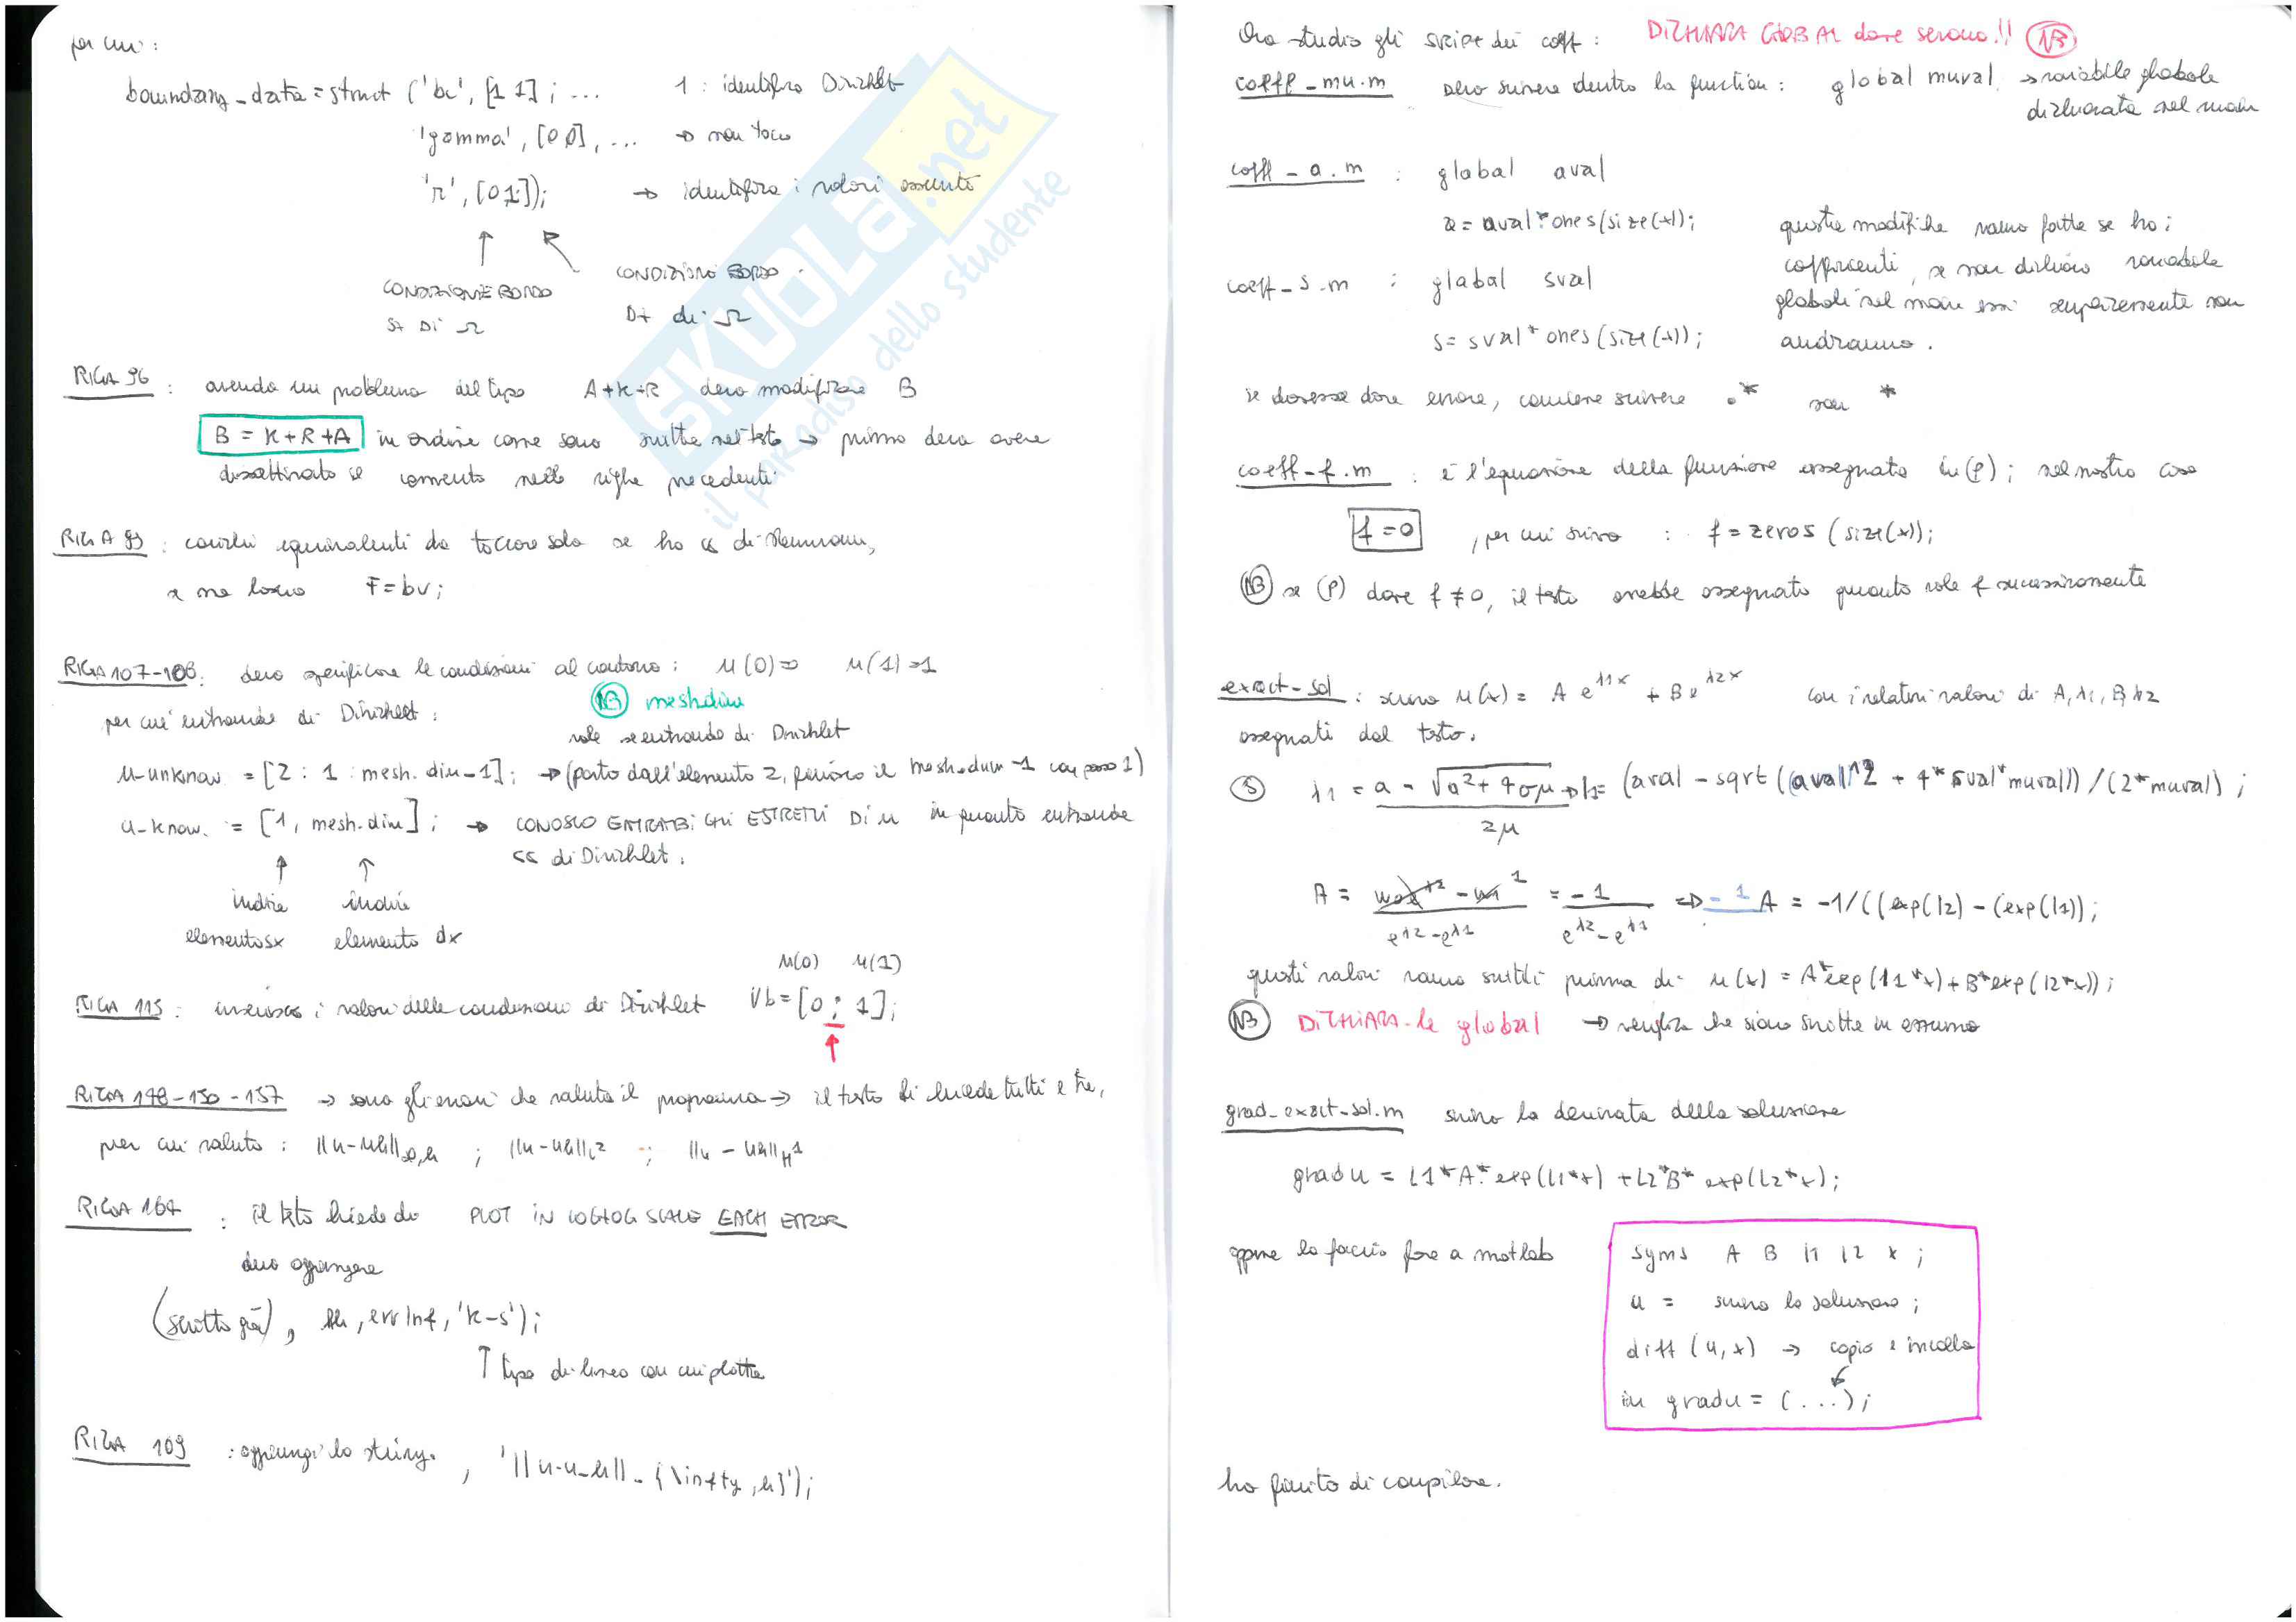 per cui:
boundary_data = struct ('bc', [1 1]; ... 1: identifica Dirichlet
'gamma', [0 0], ... → non tocco
'r', [0,1]); → identifica i valori assunti
CONDIZIONE BORDO
Sx Di Ω
CONDIZIONI BORDO
Dx di Ω
RIGA 96 : avendo un problema del tipo A+K+R devo modificare B
B = K+R+A in ordine come sono scritte nel testo → prima devo avere
disattivato il commento nelle righe precedenti
RIGA 99 : carichi equivalenti da toccare solo se ho cc di Neumann,
se no lascio F=bv;
RIGA 107-108: devo specificare le condizioni al contorno: u(0)=0 u(1)=1
per cui entrambe di Dirichlet: NB mesh.dim
vale se entrambe di Dirichlet
u-unknow = [2 : 1 : mesh.dim-1]; → (parto dall'elemento 2, finisco il mesh.dim-1 con passo 1)
u-know. = [1, mesh.dim]; → CONOSCO ENTRAMBI GLI ESTREMI Di u in quanto entrambe
cc di Dirichlet.
indice indice
elemento sx elemento dx
u(0) u(1)
RIGA 115 : inserisco i valori delle condizioni di Dirichlet Vb=[0 ; 1];
RIGA 148-150-157 → sono gli errori che valuta il programma → il testo li chiede tutti e tre,
per cui valuto : ||u-uh||∞,h ; ||u-uh||L² ; ||u-uh||H¹
RIGA 164 : il testo chiede di PLOT IN LOGLOG SCALE EACH ERROR
devo aggiungere
(scritto già), hh, errInf, 'k-s');
↑ tipo di linea con cui plotta
RIGA 109 : aggiungi la stringa , '||u-u_h||_{\infty,h}');
SKUOLA.net
il paradiso dello studente
Ora studio gli script dei coeff : DICHIARA GLOBAL dove servono!! NB
coeff_mu.m devo scrivere dentro la function : global muval → variabile globale
dichiarata nel main
coeff_a.m : global aval
a = aval*ones(size(x)); queste modifiche vanno fatte se ho i
coefficienti, se non dichiaro variabile
coeff_s.m : global sval globali nel main essi semplicemente non
s = sval*ones(size(x)); andranno.
se dovesse dare errore, conviene scrivere .* non *
coeff_f.m : è l'equazione della funzione assegnata in (P); nel nostro caso
f=0 , per cui scrivo : f=zeros (size(x));
NB se (P) dave f≠0, il testo avrebbe assegnato quanto vale f successivamente
exact-sol : scrivo u(x) = A e^λ1x + B e^λ2x con i relativi valori di A, λ1, B, λ2
assegnati dal testo.
S λ1 = a - √a²+4σμ / 2μ → l1= (aval - sqrt((aval)^2 + 4*sval*muval))/(2*muval);
A = -1 / e^λ2-e^λ1 ⇒ A = -1/((exp(l2) - (exp(l1));
questi valori vanno scritti prima di u(x) = A*exp(l1*x)+B*exp(l2*x));
NB DiCHiARA-le global → verifica che siano scritte in
grad_exact-sol.m scrivo la derivata della soluzione
gradu = L1*A*exp(L1*x) + L2*B*exp(L2*x);
oppure lo faccio fare a matlab
syms A B l1 l2 x ;
u = scrivo la soluzione ;
diff (u,x) → copio e incollo
in gradu = (...);
ho finito di compilare.